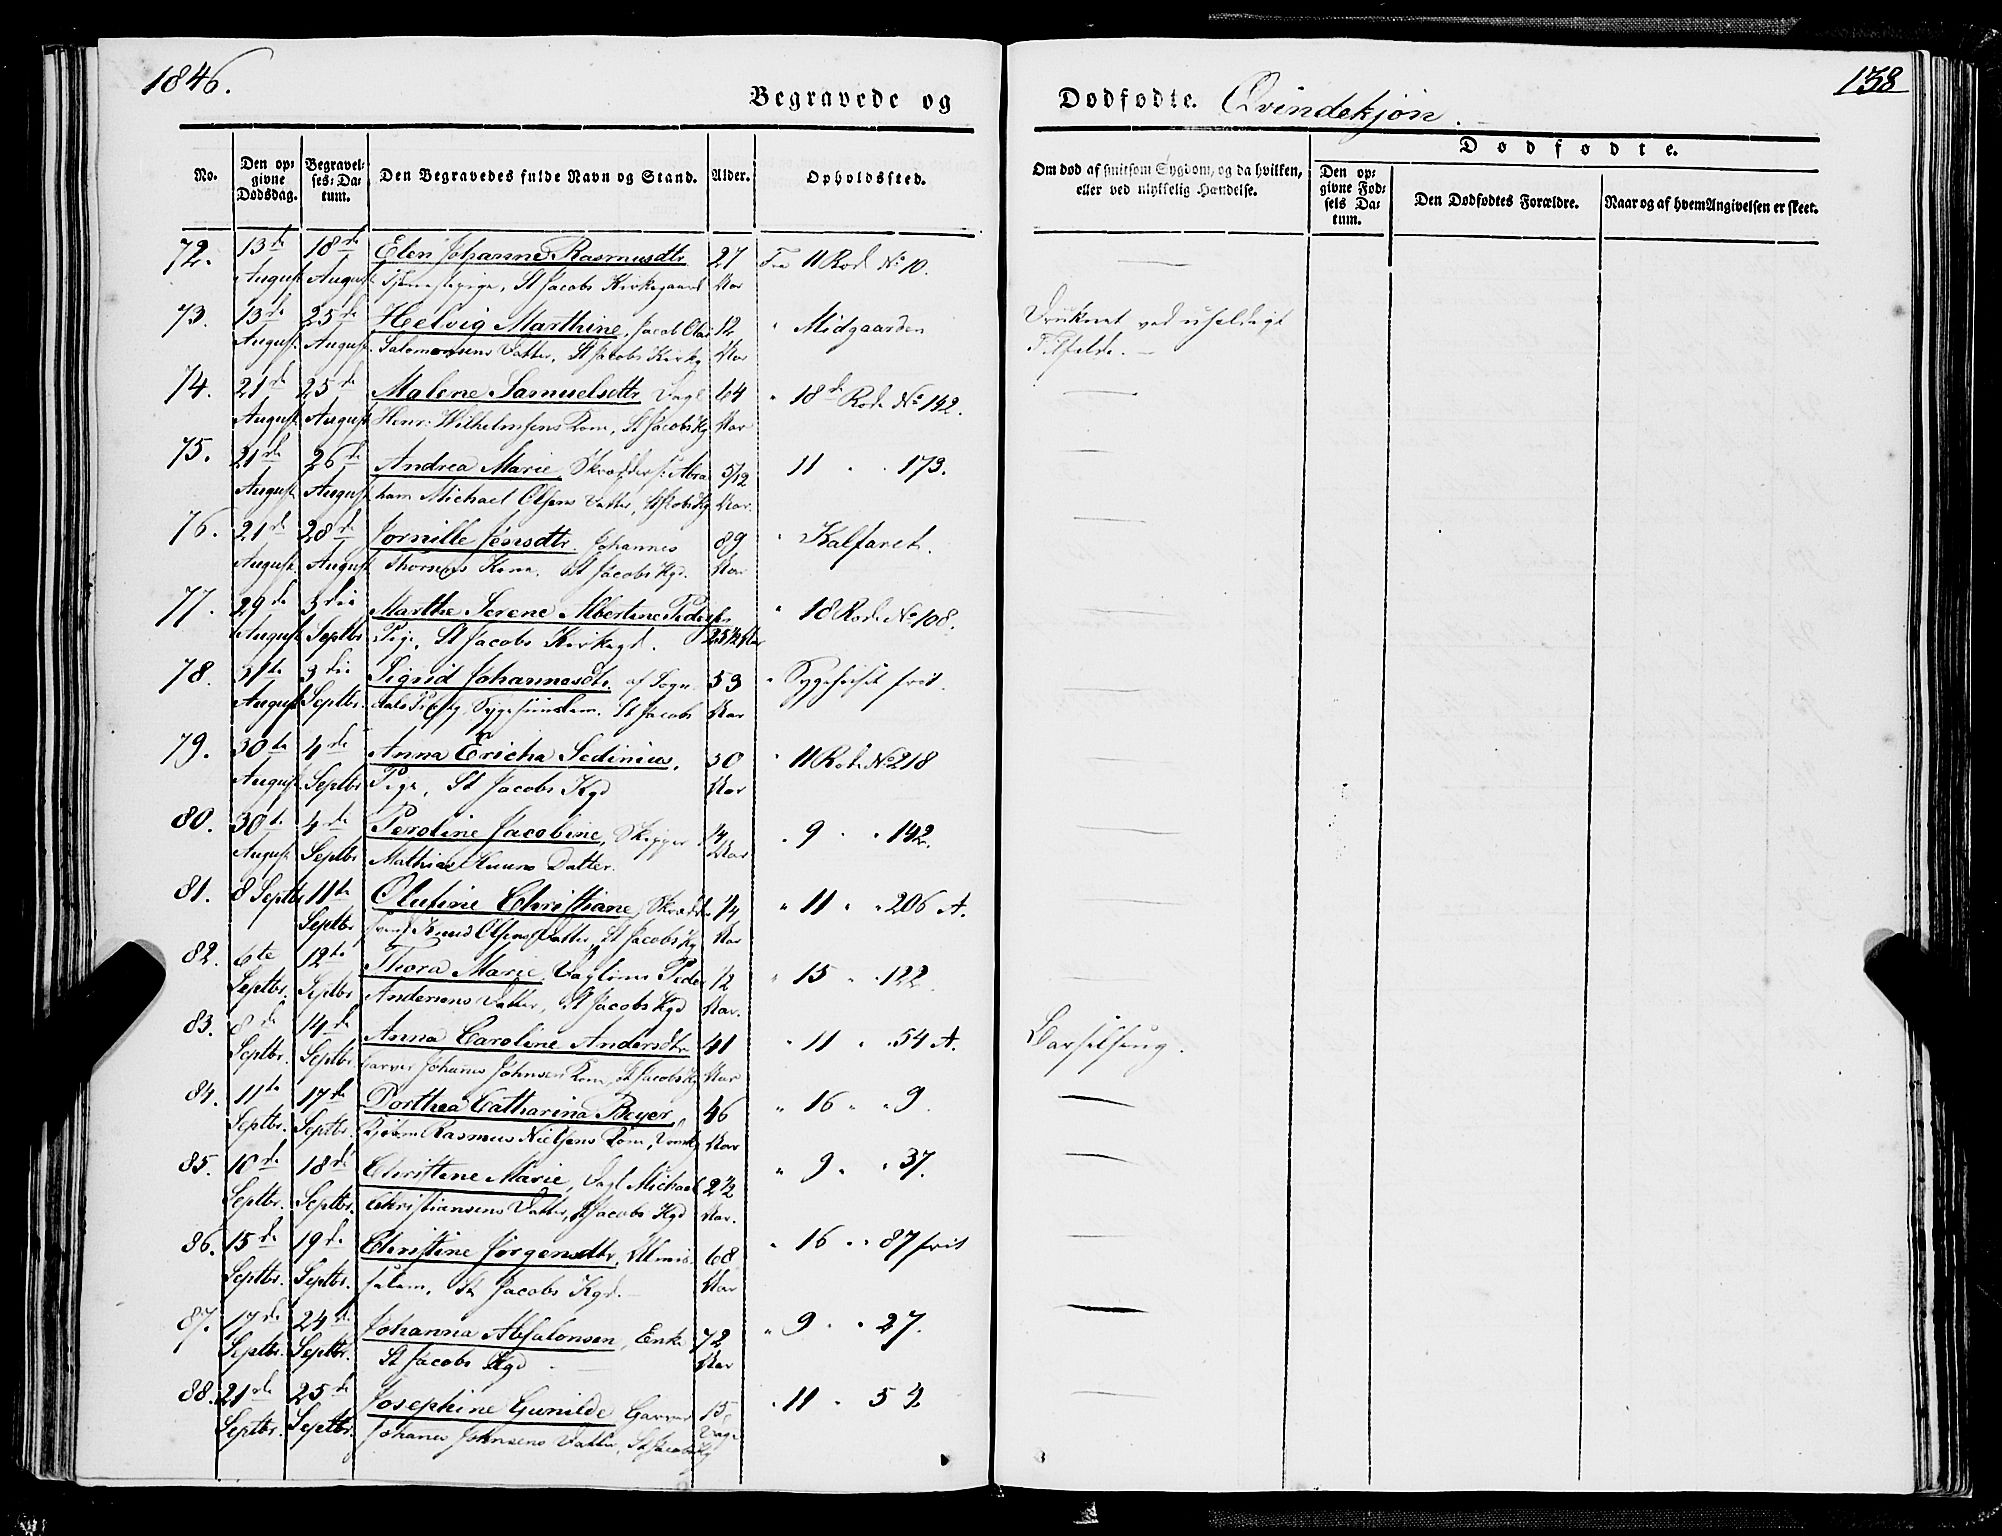 1846.
138
Begravede og Dødfødte. Qvindekjøn.
No.
Den opgivne Dødsdag.
Begravelses-Datum.
Den Begravedes fulde Navn og Stand.
Alder.
Opholdssted.
Om død af smitsom Sygdom, og da hvilken, eller ved ulykkelig Hændelse.
Dødfødte.
Den opgivne Fødsels Datum.
Den Dødfødtes Forældre.
Naar og af hvem Angivelsen er skeet.
72. 13de 18de Elen Johanne Rasmusdtr 27 Fra 11 Rode No 10.
August August Tjenestepige, St Jacobs Kirkegaard Aar
73. 13de 25de Helvig Marthine, Jacob Olai 12 " Midgaarden Druknet ved uheldigt
August August Salomonsens Datter, St Jacobs Kirkg Aar Tilfælde.
74. 21de 25de Malene Samuelsdtr Dagl 64 " 18de Rode No 142.
August August Henr: Wilhelmsens Kone, St Jacobs Kg Aar
75. 21de 26de Andrea Marie, Skrædders: Abra 5/12 11 " " 173.
August August ham Michael Olsens Datter, St Jacobs Kg Aar.
76. 21de 28de Jornille Jensdtr. Johannes 89 " Kalfaret.
August August Thornæs Kone. St Jacobs Kgd. Aar
77. 29de 3die Marthe Serene Albertine Peders " 18 Rode No 108.
August Septbr Pige, St Jacobs Kirkegd. 25 1/2 Aar
78. 31te 3die Sigrid Johannesdtr. af Sogn 53 " Sygehuset frit.
August Septbr. dals Pstg, Sygehuuslem. St Jacobs Aar
79. 30te 4de Anna Ericha Sedinius, 30 " 11 Rode No 218
August Septbr Pige, St Jacobs Kgd Aar
80. 30te 4de Peroline Jacobine, Skipper 1/4 " 9 " " 142.
August Septbr Mathias Huuns Datter. Aar
81. 8 Septbr 11te Olufine Christiane, Skrædder 1/4 " 11 " " 206 A.
Septbr svend Knud Olsens Datter, St Jacobs Kg Aar
82. 6te 12te Thora Marie, Daglønner Peder 1/2 " 15 " " 122.
Septbr. Septbr Andersens Datter, St Jacobs Kgd Aar.
83. 8de 14de Anna Caroline Andersdtr 41 " 11 " " 54 A. Barselseng.
Septbr. Septbr Garver Johanes Johnsens Kone, St Jacobs Kg Aar
84. 11te 17de Dorthea Catharina Beyer, 46 " 16 " " 9.
Septbr. Septbr. Kjøbm Rasmus Nielsens Kone, Aar
85. 10de 18de Christine Marie, Dagl Michael 2 1/2 " 9 " " 37.
Septbr. Septbr. Christiansens Datter, St Jacobs Kgd Aar.
86. 15de 19de Christine Jørgensdtr, Almis- 68 " 16 " " 87 frit
Septbr. Septbr. selem, St Jacobs Kgd. Aar
87. 17de 24de Johanna Absalonsen, Enke 72 " 9 " " 27.
Septbr. Septbr. St Jacobs Kgd Aar
88. 21de 25de Josephine Gunilde Garver 15 " 11 " 54
Septbr. Septbr. Johanes Johnsens Datter, St Jacobs Kg Dage